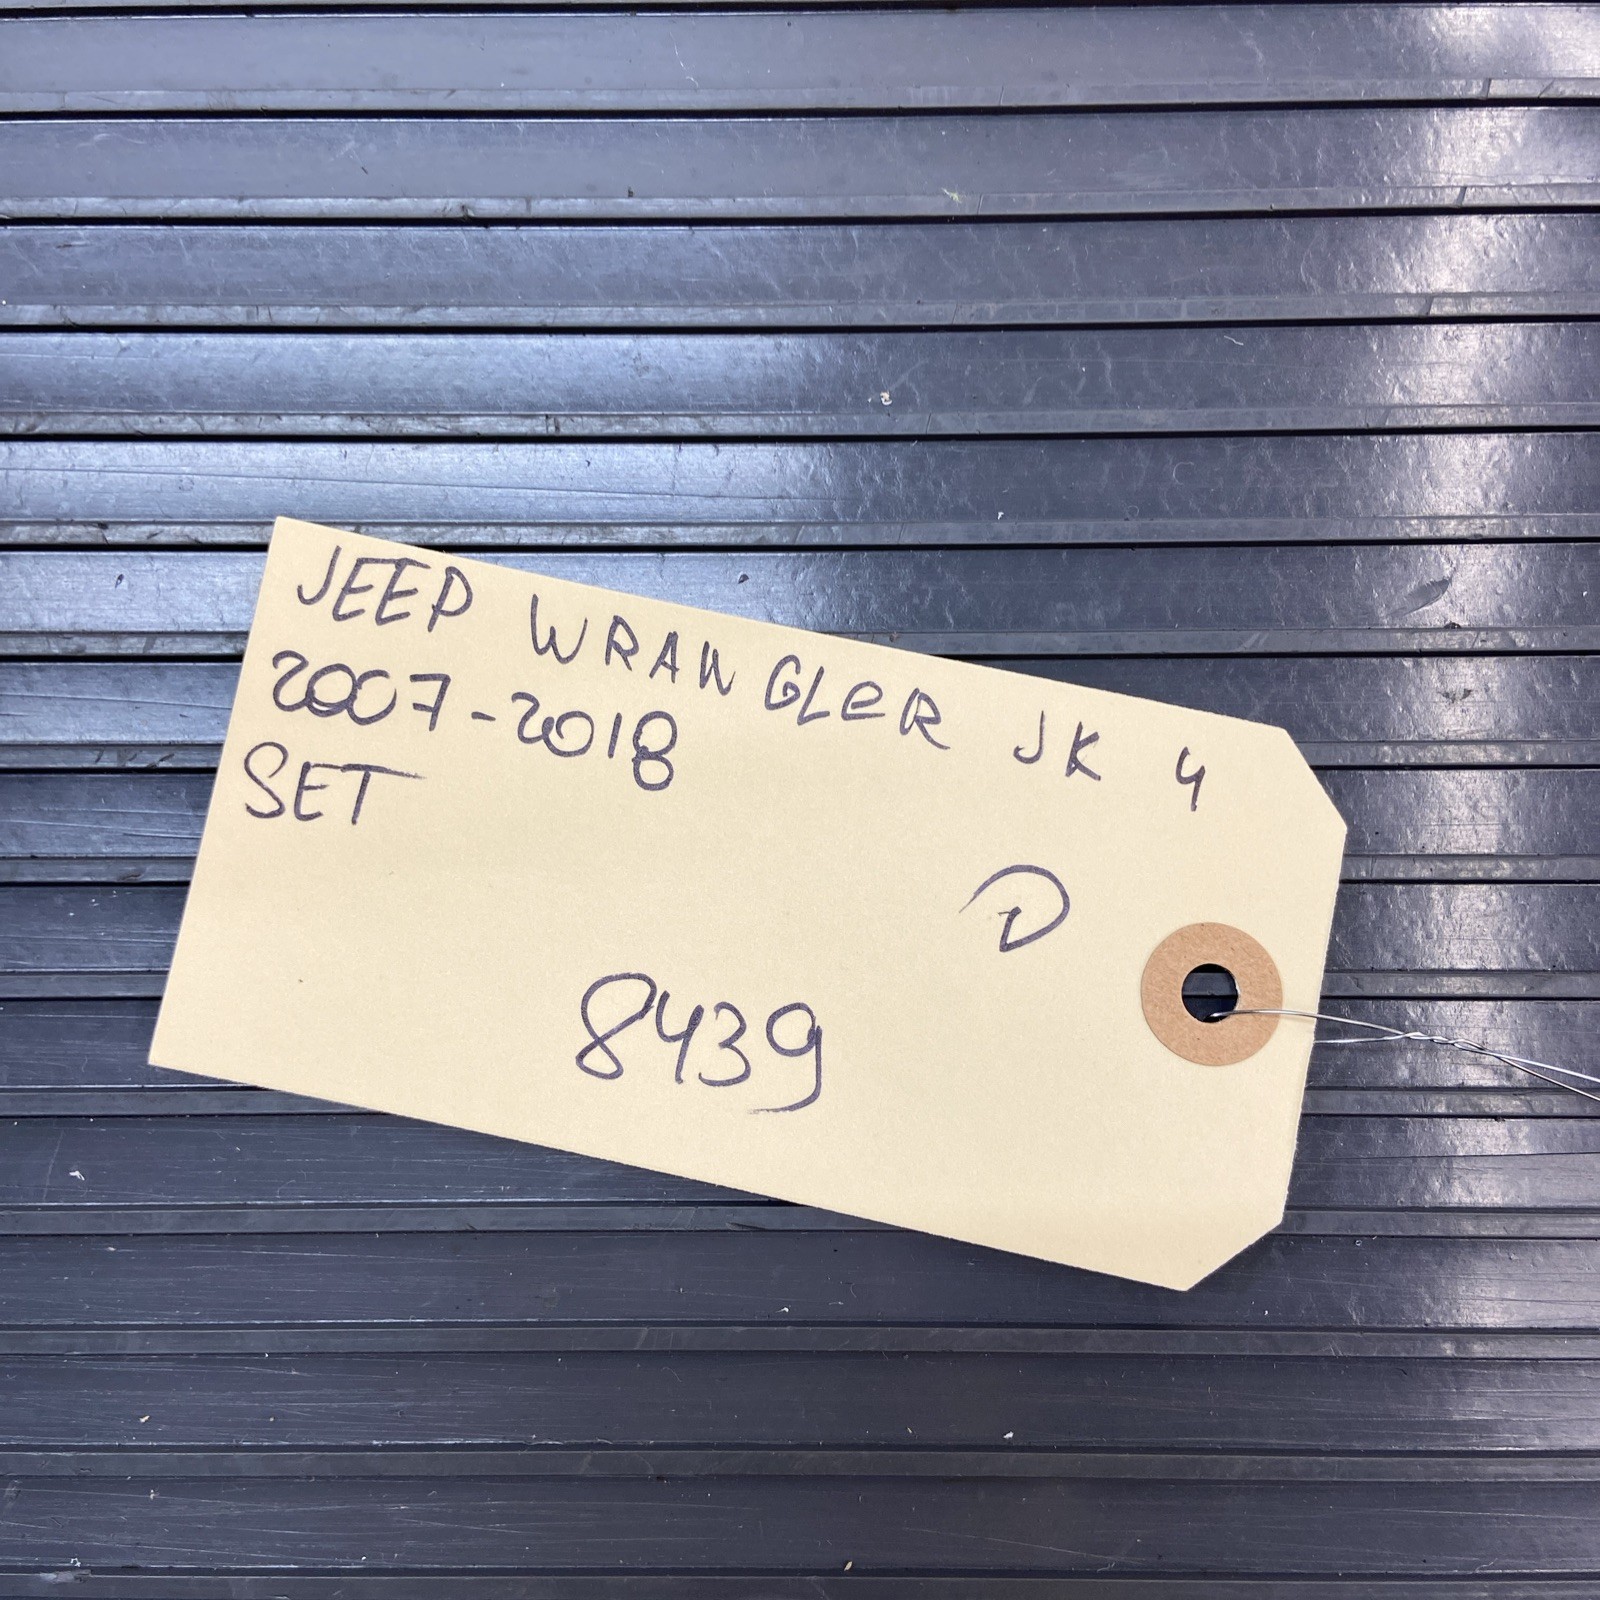 JEEP WRANGLER JK 4
2007-2018
SET
D
8439